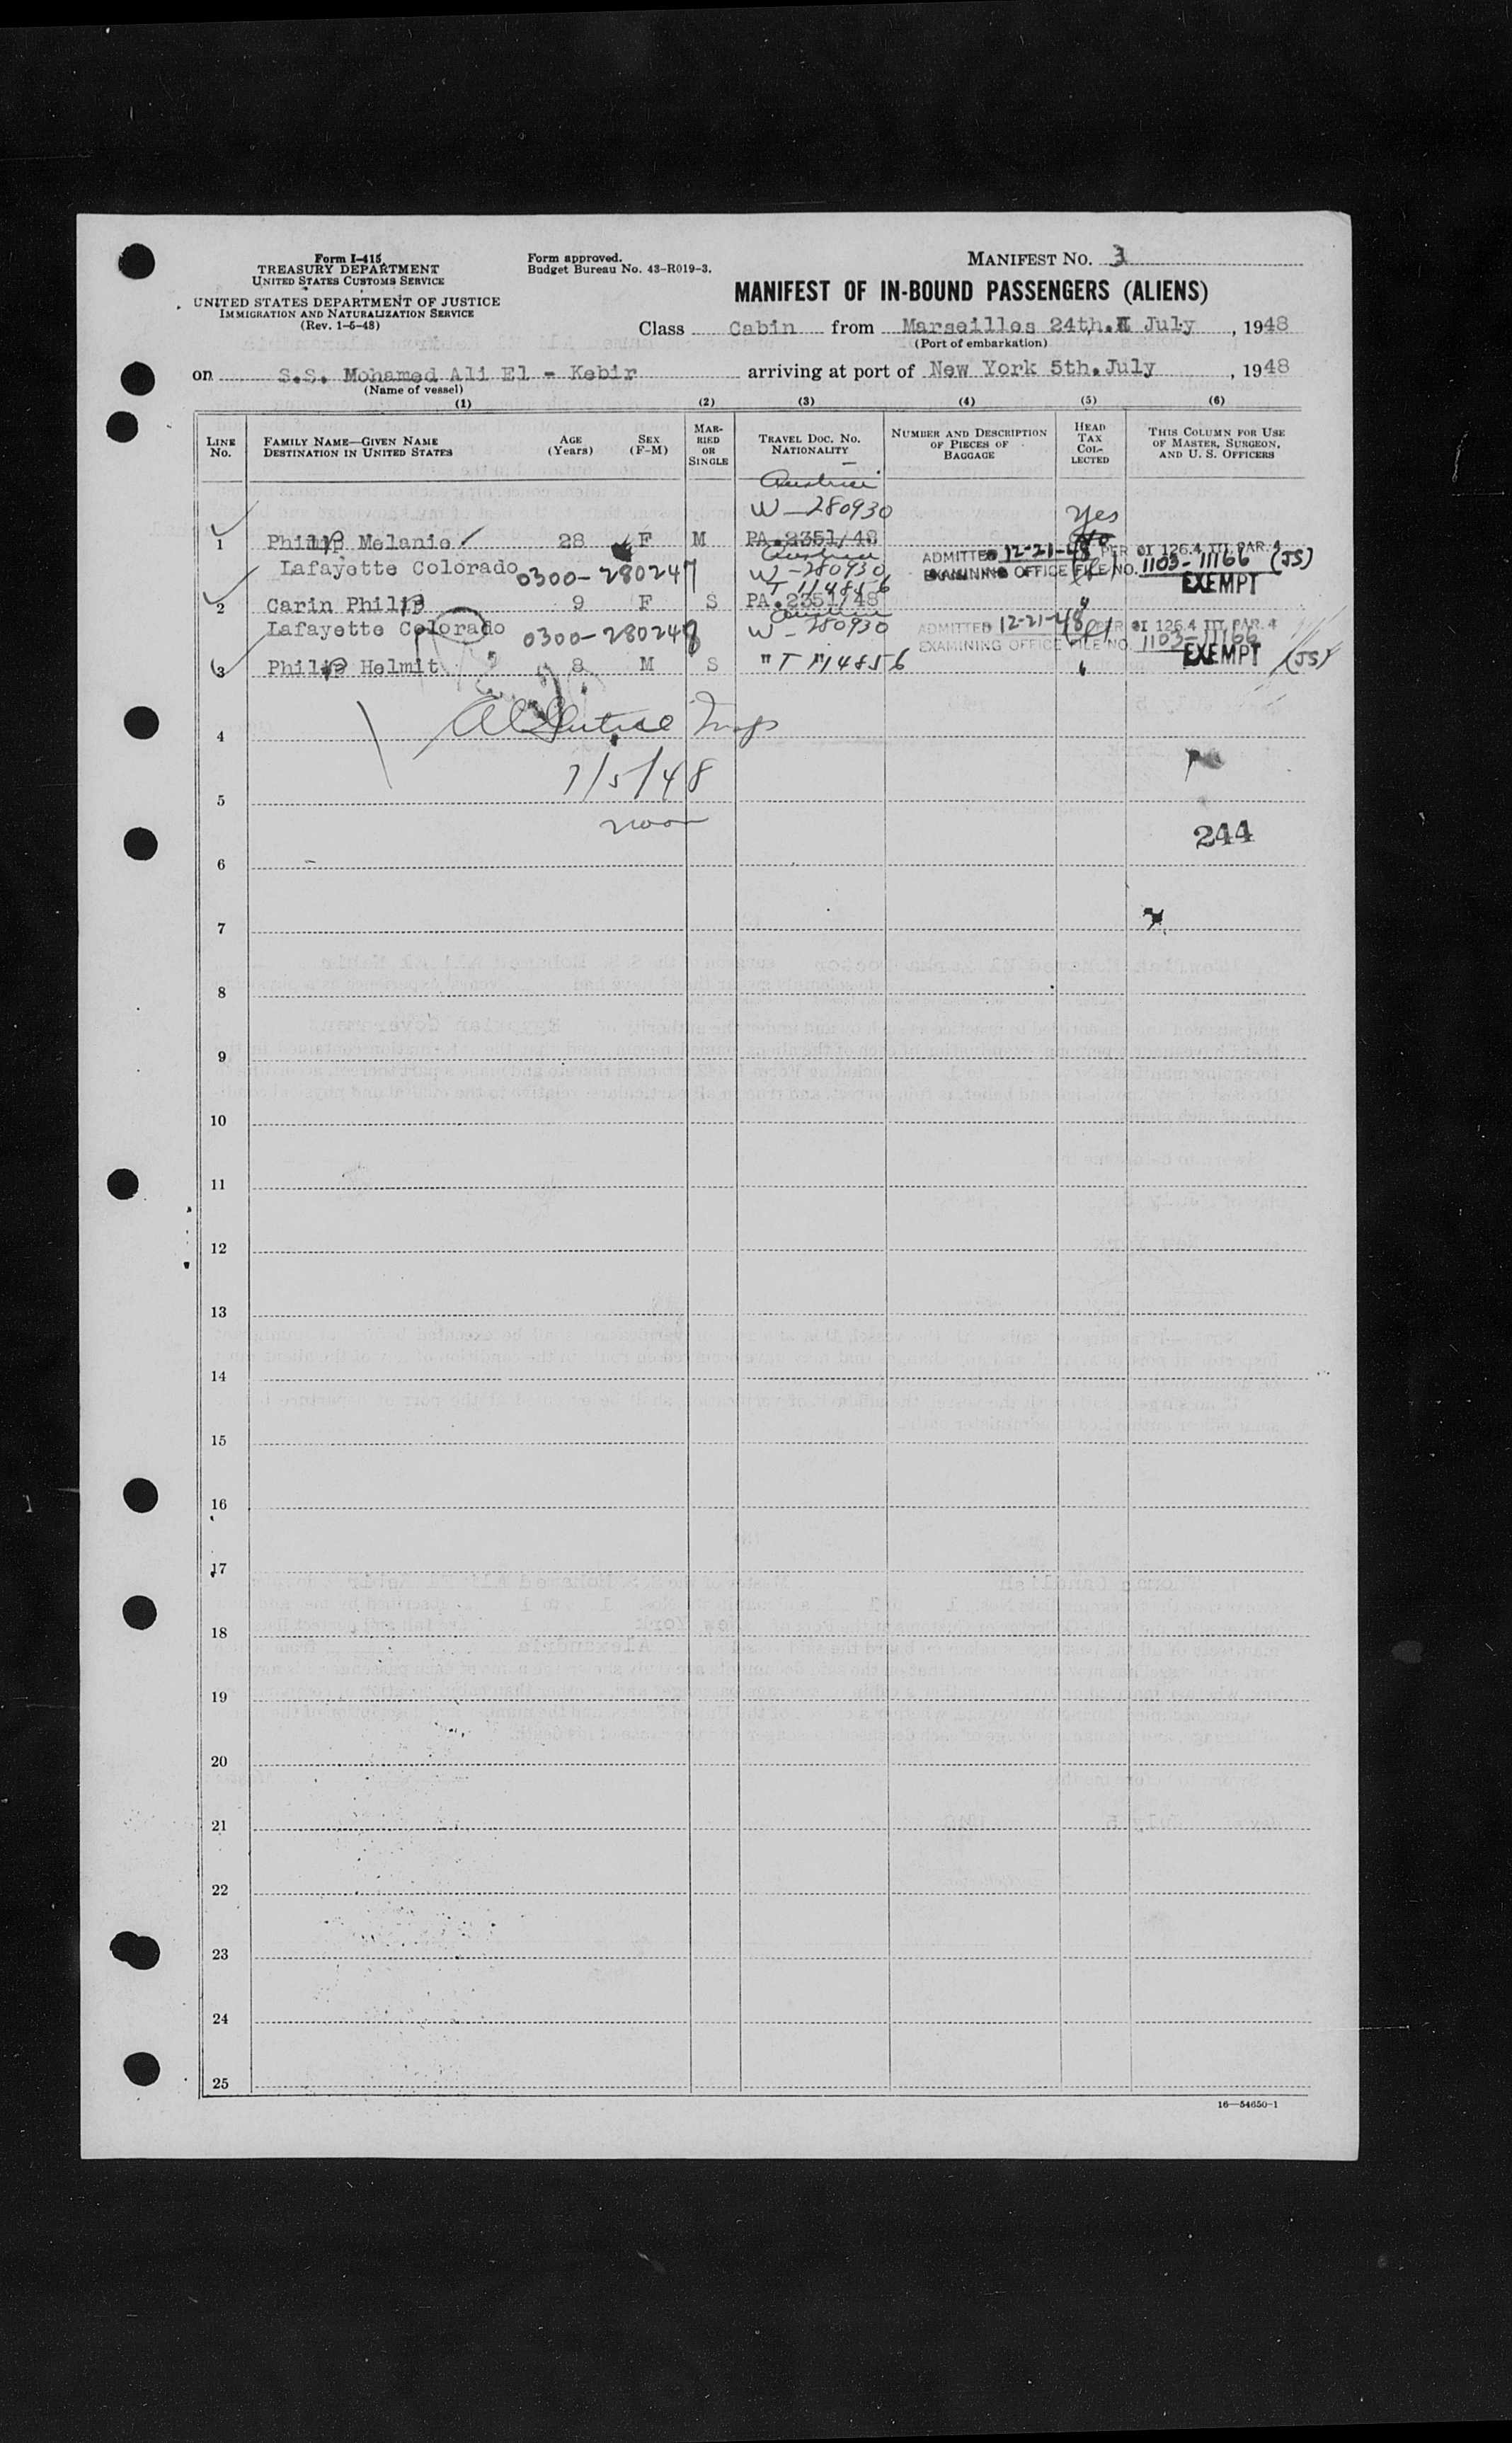 Form I-415
TREASURY DEPARTMENT
UNITED STATES CUSTOMS SERVICE
UNITED STATES DEPARTMENT OF JUSTICE
IMMIGRATION AND NATURALIZATION SERVICE
(Rev. 1-5-48)
Form approved.
Budget Bureau No. 43-R019-3.
MANIFEST NO. 3
MANIFEST OF IN-BOUND PASSENGERS (ALIENS)
Class Cabin from Marseilles 24th. July, 1948
(Port of embarkation)
on S.S. Mohamed Ali El - Kebir arriving at port of New York 5th. July, 1948
(Name of vessel)
(1) (2) (3) (4) (5) (6)
LINE No. FAMILY NAME—GIVEN NAME DESTINATION IN UNITED STATES AGE (Years) SEX (F-M) MARRIED OR SINGLE TRAVEL DOC. NO. NATIONALITY NUMBER AND DESCRIPTION OF PIECES OF BAGGAGE HEAD TAX COLLECTED THIS COLUMN FOR USE OF MASTER, SURGEON, AND U. S. OFFICERS
Austria
W-280930
Yes
1 Philipp Melanie 28 F M PA.2351/48 No
Austria
ADMITTED 12-21-48 PER OI 126.4 III PAR. 4
Lafayette Colorado 0300-280247 W-280930 EXAMINING OFFICE FILE NO. 1103-71166 (JS)
T 114856 EXEMPT
2 Carin Philipp 9 F S PA.2351/48 "
Austria
Lafayette Colorado 0300-280248 W-280930 ADMITTED 12-21-48 PER OI 126.4 III PAR. 4
EXAMINING OFFICE FILE NO. 1103-71166
EXEMPT (JS)
3 Philipp Helmit 8 M S " T 114856 "
4
7/5/48
5
noon
244
6
7
8
9
10
11
12
13
14
15
16
17
18
19
20
21
22
23
24
25
16—54650-1